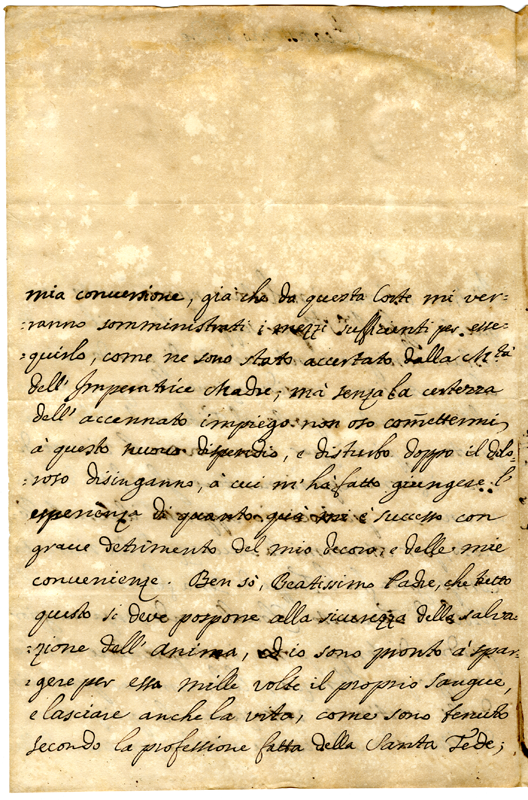 mia conversione, già che da questa Corte mi ver=
:ranno somministrati i mezzi sufficienti per esse=
:guirlo, come ne sono stato accertato dalla M.tà
dell' Imperatrice Madre; mà senza la certezza
dell' accennato impiego non oso com̃ettermi
à questo nuovo dispendio, e disturbo doppo il dolo=
:roso disinganno, à cui m'hà fatto giungere l'
esperienza di quanto quì mi è successo con
grave detrimento del mio decoro, e delle mie
convenienze. Ben sò, Beatissimo Padre, che tutto
questo si deve posporre alla sicurezza della salva=
:zione dell' anima, ed io sono pronto à spar=
:gere per essa mille volte il proprio sangue,
e lasciare anche la vita, come sono tenuto
secondo la professione fatta della Santa Fede;